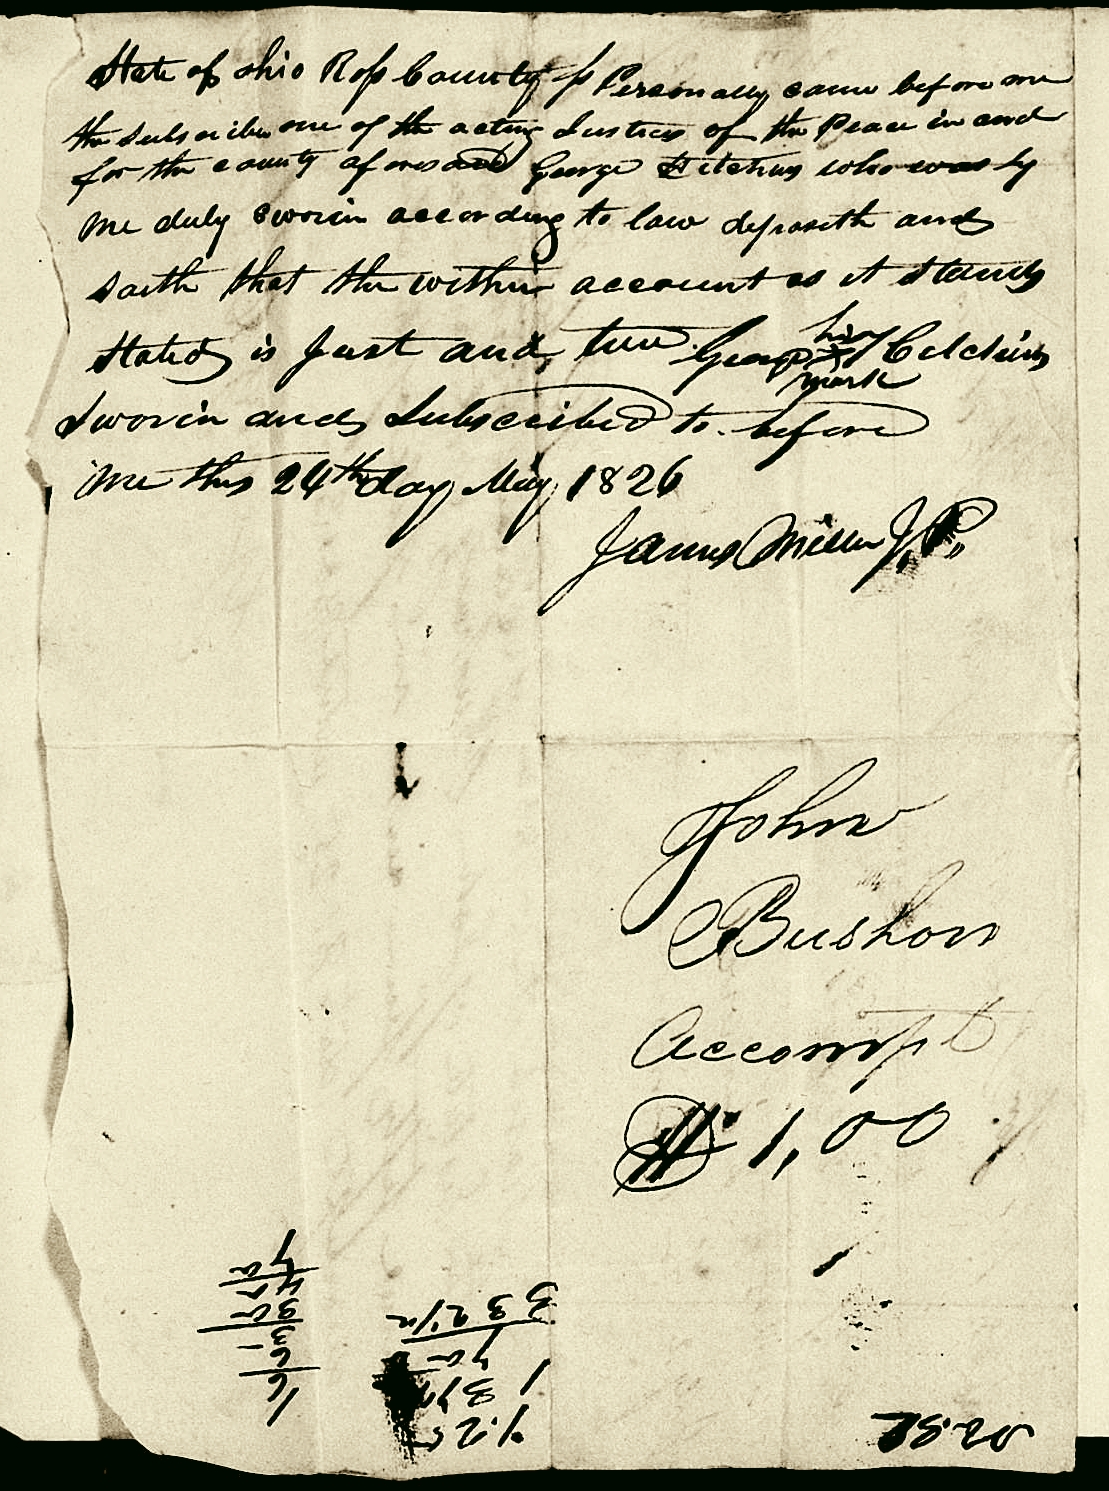 State of ohio Ross County ss Personally came before me
the Subscriber one of the acting Justices of the Peace in and
for the county aforesaid George who was by
me duly sworin according to law deposeth and
saith that the within account as it stands
stated is Just and, true. George his X mark
Sworin and Subscribed to. before
me this 24th day May 1826
James Miller J.P.
John
Bushon
Accompt
$ 1,00